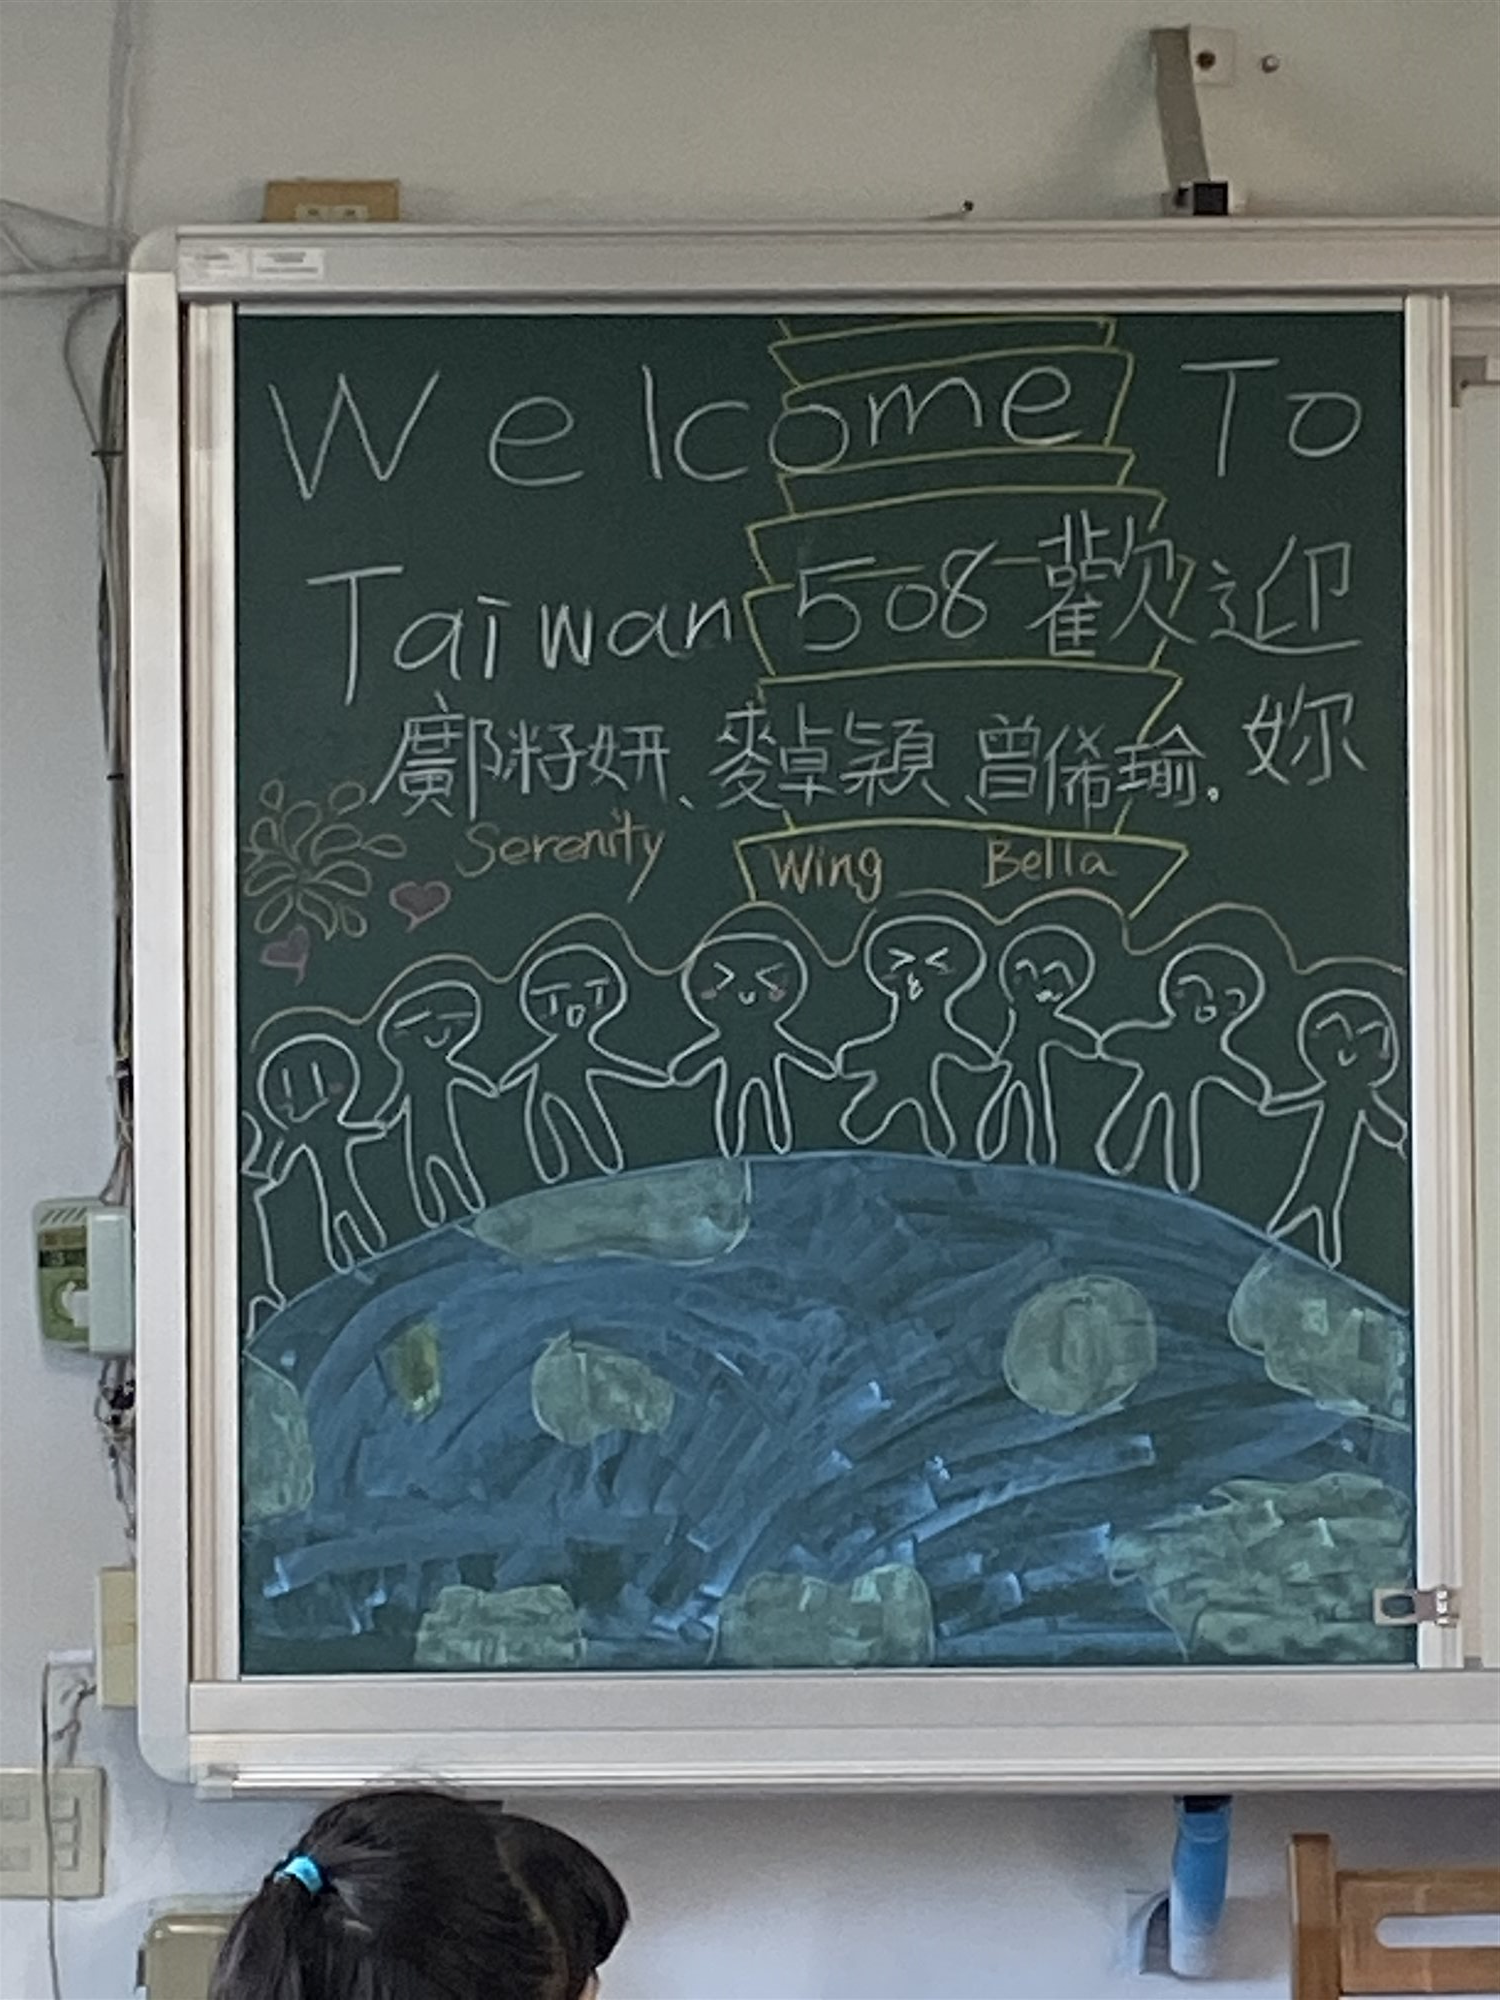 Welcome To
Taiwan 508歡迎
鄺籽妍、麥卓穎、曾俙瑜. 妳
Serenity Wing Bella